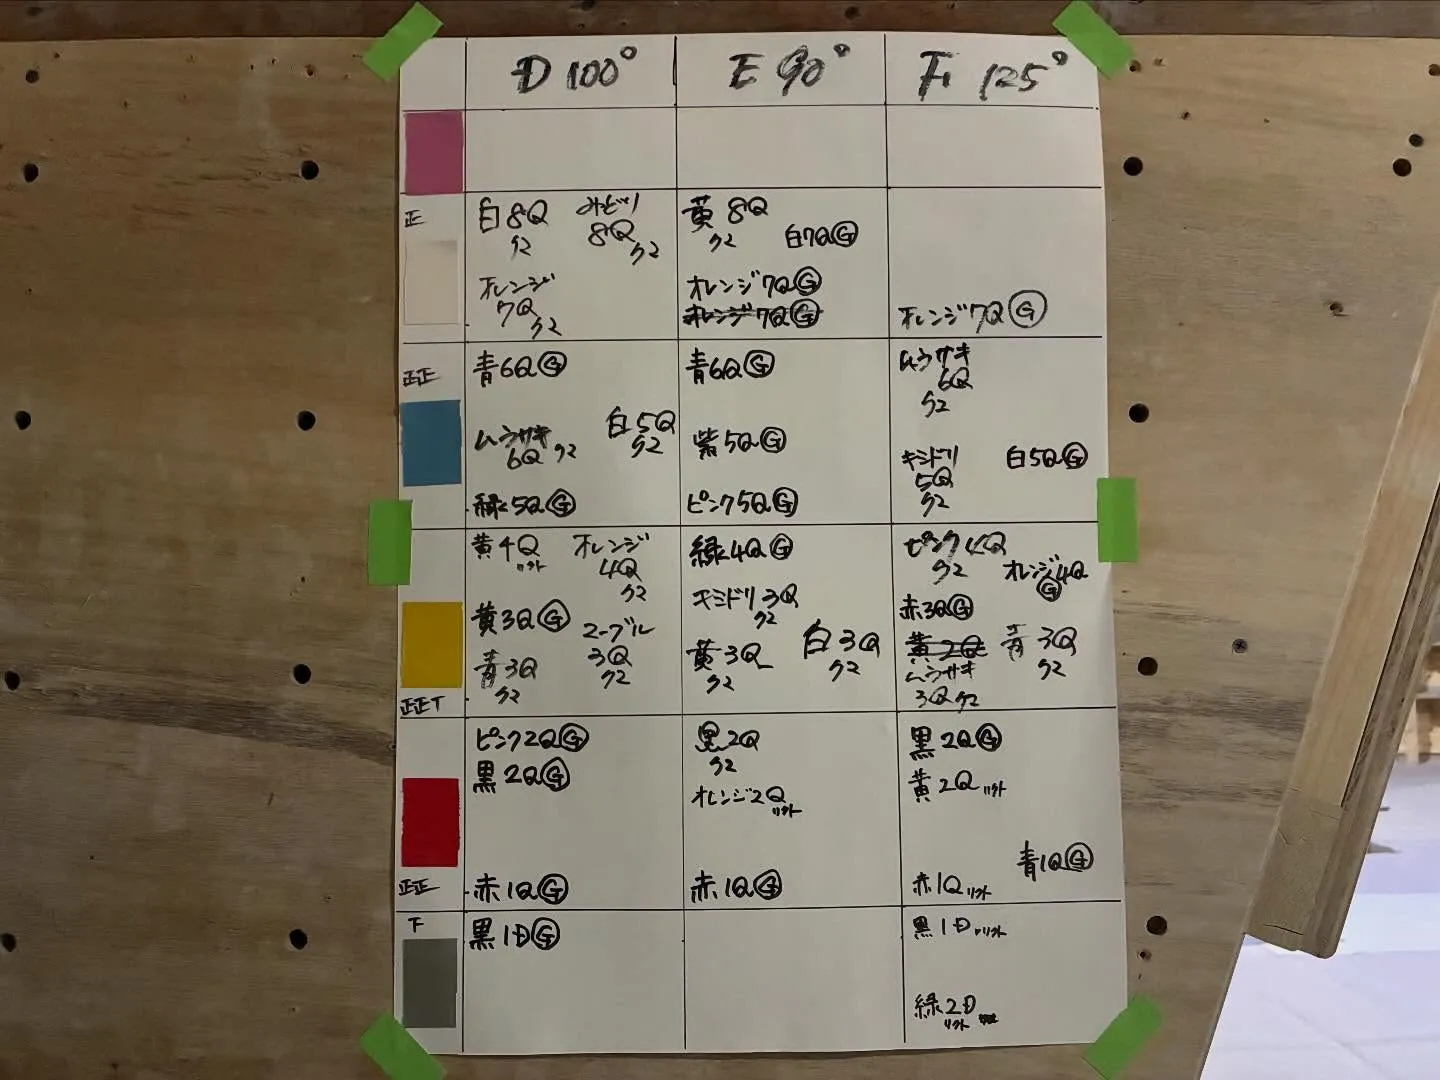 D 100° E 90° F 125°
正
白8Q みどり 黄 8Q
ク2 8Q ク2 白7QⒼ
ク2
オレンジ オレンジ7QⒼ
7Q オレンジ7QⒼ オレンジ7QⒼ
ク2
正正
青6QⒼ 青6QⒼ ムラサキ
6Q
ク2
ムラサキ 白5Q 紫5QⒼ キミドリ 白5QⒼ
6Q ク2 ク2 5Q
ク2
緑5QⒼ ピンク5QⒼ
黄4Q オレンジ 緑4QⒼ ピンク4Q
リフト 4Q ク2 オレンジ4Q
ク2 Ⓖ
黄3QⒼ マーブル キミドリ3Q 赤3QⒼ
3Q ク2
青3Q ク2 黄3Q 白3Q 黄2Q 青3Q
ク2 ク2 ク2 ムラサキ ク2
3Q ク2
正正丅
ピンク2QⒼ 黒2Q 黒2QⒼ
黒2QⒼ ク2 黄2Qリフト
オレンジ2Q
リフト
青1QⒼ
正正
赤1QⒼ 赤1QⒼ 赤1Qリフト
下
黒1DⒼ 黒1Dリフト
緑2D
リフト